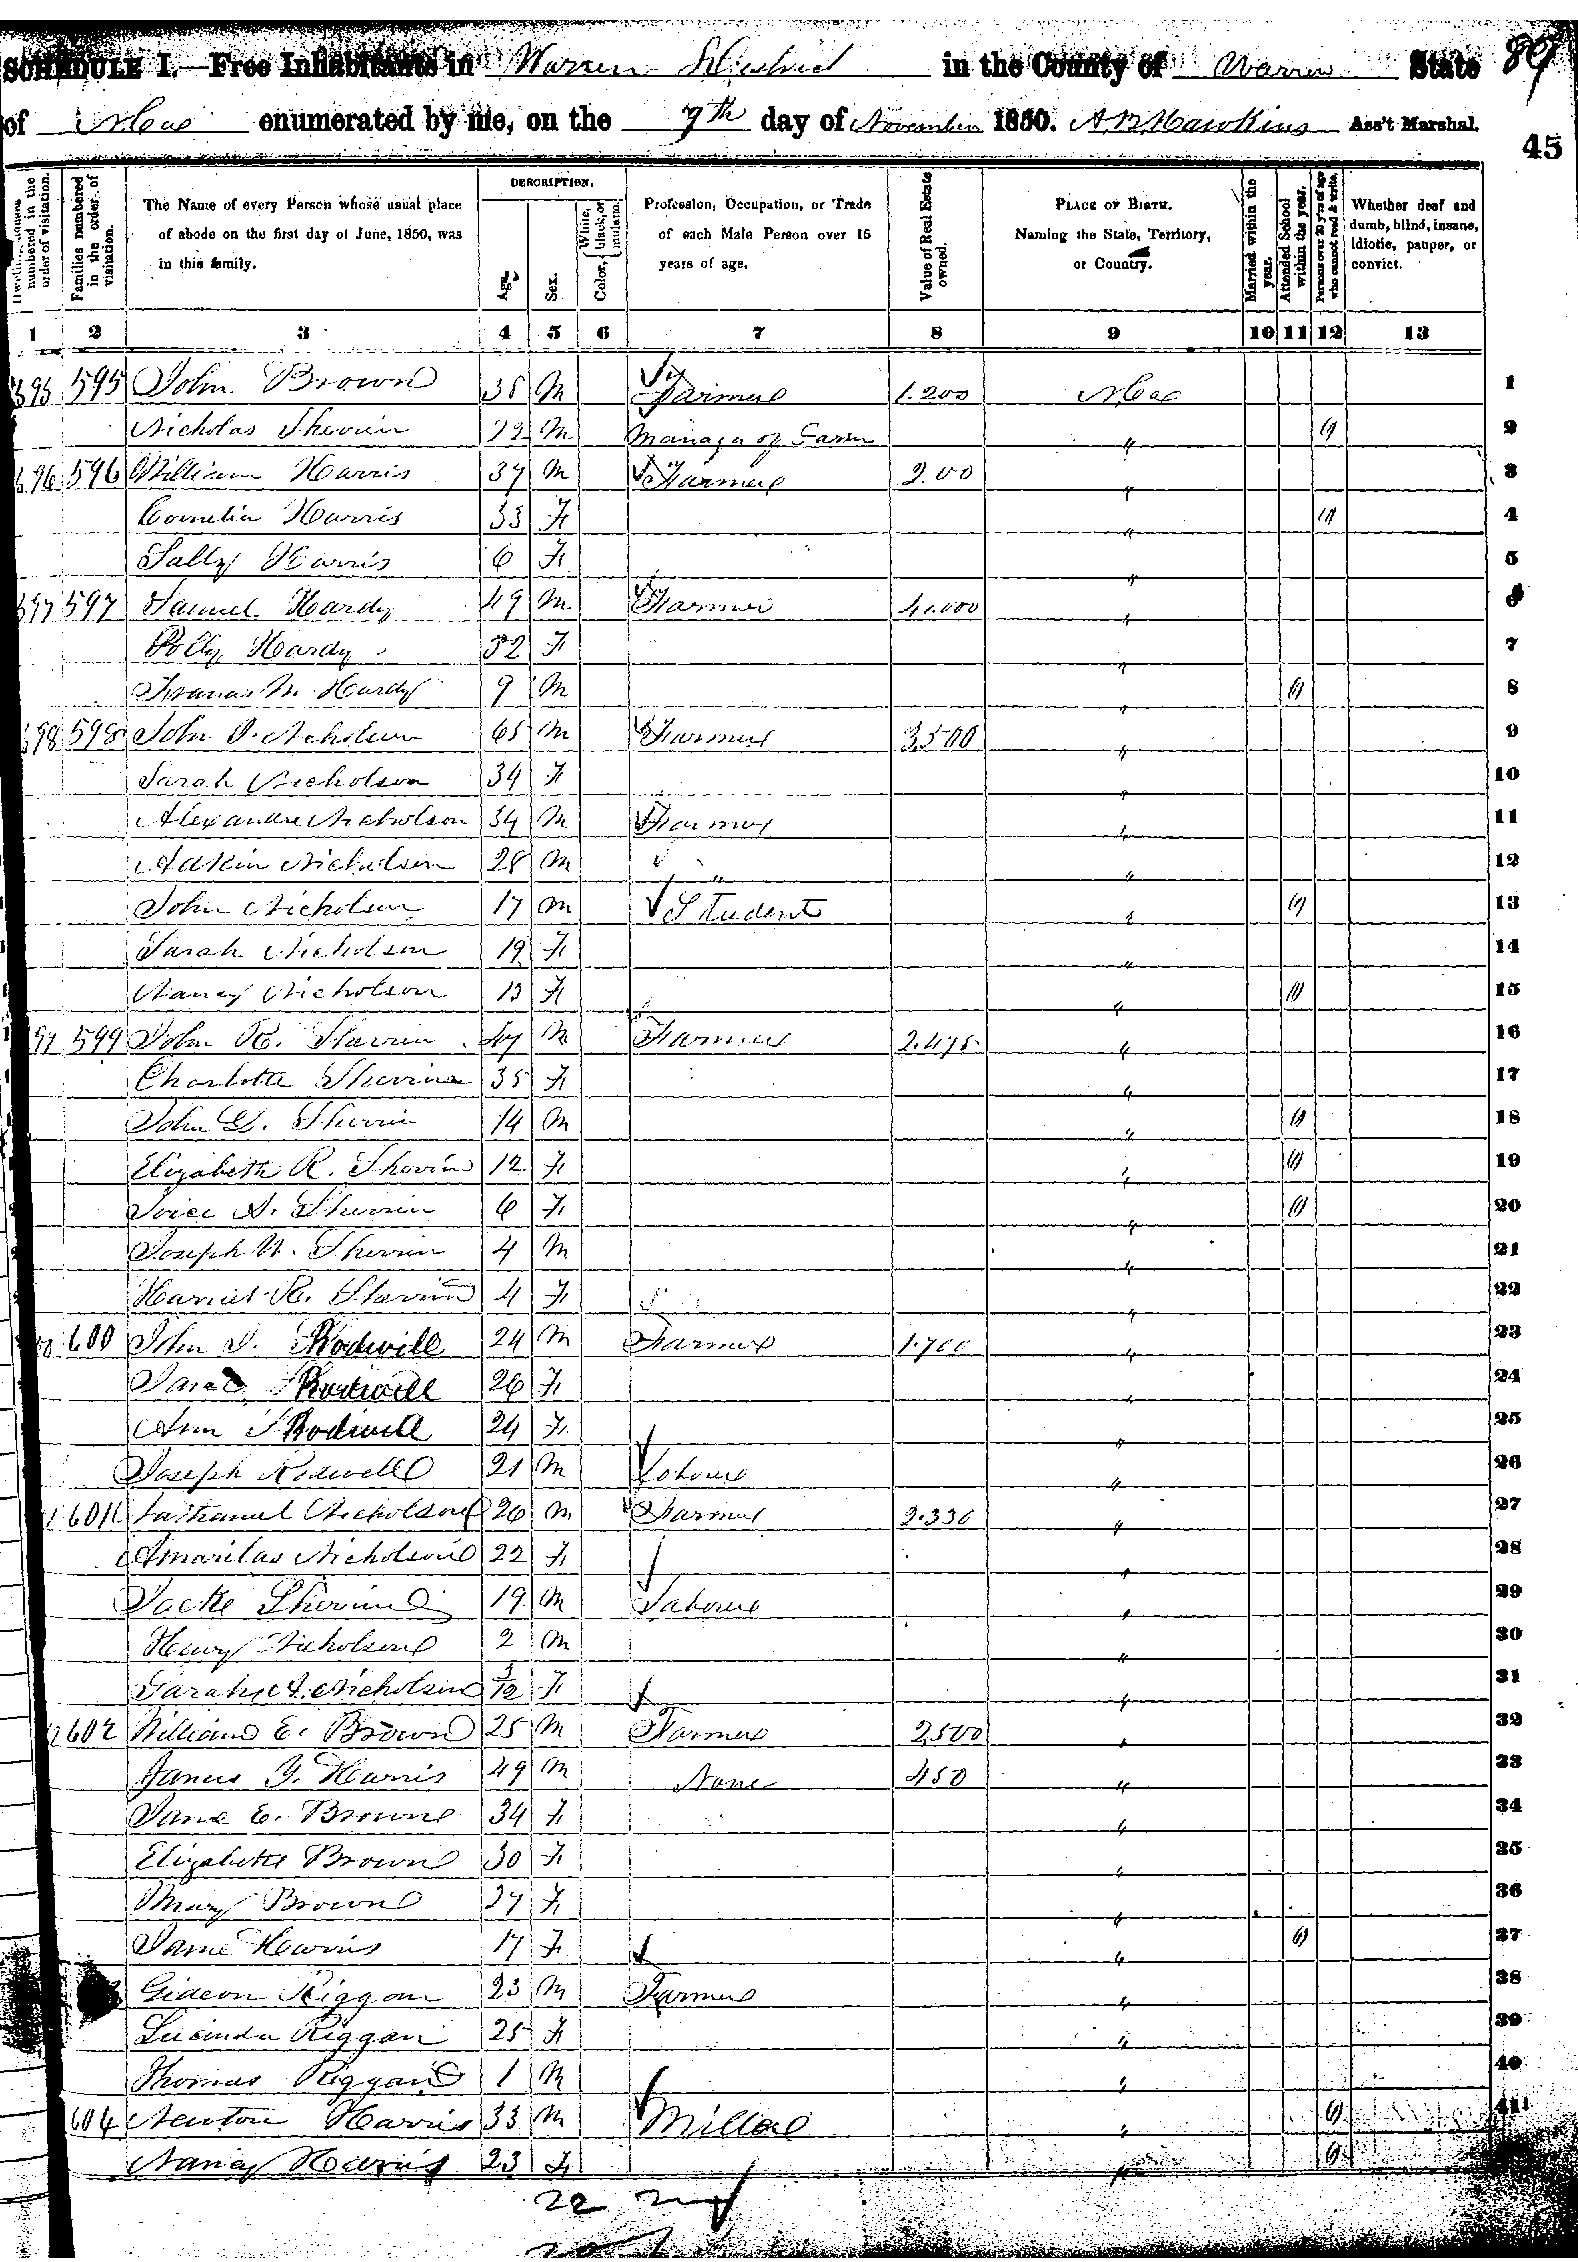 SCHEDULE I.—Free Inhabitants in Warren District in the County of Warren State 89
of N Ca enumerated by me, on the 7th day of November 1850. A B Hawkins Ass't Marshal.
45
numbered in the order of visitation.
Families numbered in the order of visitation.
The Name of every Person whose usual place of abode on the first day of June, 1850, was in this family.
DESCRIPTION.
Age.
Sex.
Color, White, black, or mulatto.
Profession, Occupation, or Trade of each Male Person over 15 years of age.
Value of Real Estate owned.
PLACE OF BIRTH. Naming the State, Territory, or Country.
Married within the year.
Attended School within the year.
Persons over 20 y'rs of age who cannot read & write.
Whether deaf and dumb, blind, insane, idiotic, pauper, or convict.
1 2 3 4 5 6 7 8 9 10 11 12 13
595 595 John Brown 38 M Farmer 1.200 N Ca 1
Nicholas Sherrin 72 M Manager of Farm " 2
596 596 William Harris 37 M Farmer 200 " 3
Cornelia Harris 33 F " 4
Sally Harris 6 F " 5
597 597 Samuel Hardy 49 M Farmer 4.000 " 6
Polly Hardy 52 F " 7
Francis M Hardy 9 M " 8
598 598 John Nicholson 65 M Farmer 3500 " 9
Sarah Nicholson 34 F " 10
Alexander Nicholson 34 M Farmer " 11
Adkin Nicholson 28 M " " 12
John Nicholson 17 M Student " 13
Sarah Nicholson 19 F " 14
Nancy Nicholson 13 F " 15
599 John R. Sherrin 47 M Farmer 2.475 " 16
Charlotte Sherrin 35 F " 17
John G. Sherrin 14 M " 18
Elizabeth R. Sherrin 12 F " 19
A. Sherrin 6 F " 20
Joseph W. Sherrin 4 M " 21
Harriet R. Sherrin 4 F " 22
600 John Rodwell 24 M Farmer 1.700 " 23
Sarah Rodwell 26 F " 24
Ann Rodwell 24 F " 25
Joseph Rodwell 21 M Laborer " 26
601 Nathaniel Nicholson 26 M Farmer 2.330 " 27
Amarilas Nicholson 22 F " 28
Sherrin 19 M Laborer " 29
Henry Nicholson 2 M " 30
Sarah A. Nicholson 3/12 F " 31
602 William E. Brown 25 M Farmer 2500 " 32
James Y. Harris 49 M None 450 " 33
Jane E. Brown 34 F " 34
Elizabeth Brown 30 F " 35
Mary Brown 27 F " 36
Jane Harris 17 F " 37
Gideon Riggan 23 M Farmer " 38
Lucinda Riggan 25 F " 39
Thomas Riggan 1 M " 40
604 Newton Harris 33 M Miller " 41
Nancy Harris 23 F "
22